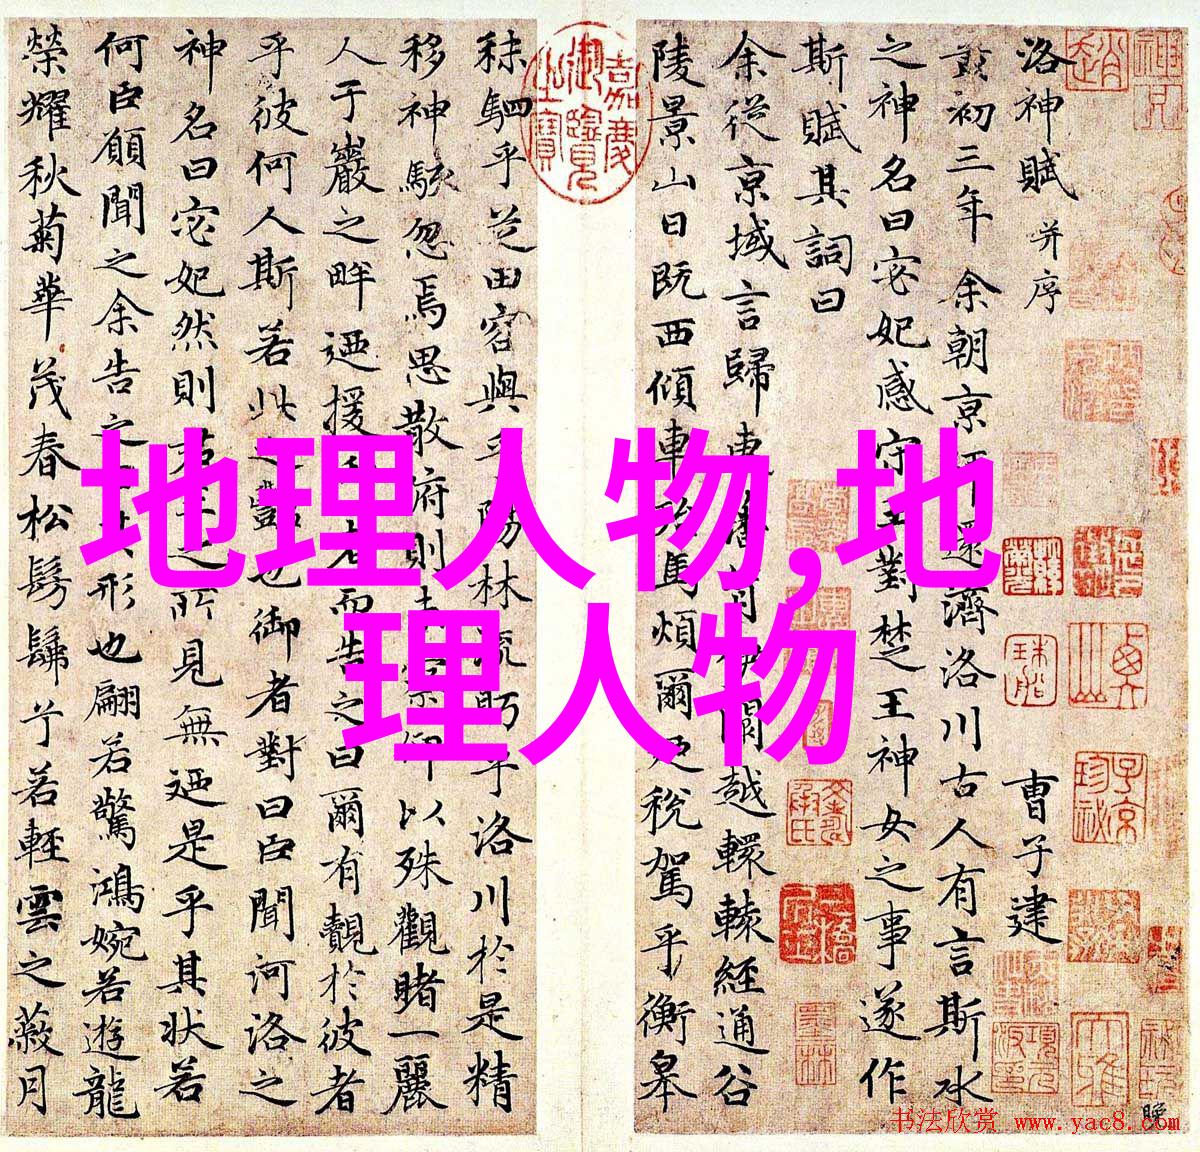 地理人物,地
理人物
洛神賦 并序 曹子建
初三年余朝京還濟洛川古人有言斯水
之神名曰宓妃感宋玉對楚王神女之事遂作
斯賦其詞曰
余從京域言歸東藩背伊闕越轘轅經通谷
陵景山日既西傾車殆馬煩爾乃稅駕乎衡皋
秣駟乎芝田容與乎陽林流眄乎洛川於是精
移神駭忽焉思散府則未察仰以殊觀睹一麗
人于巖之畔迺援者而告之曰爾有覿於彼者
乎彼何人斯若此之豔也御者對曰臣聞河洛之
神名曰宓妃然則君王之所見無迺是乎其狀若
何臣願聞之余告之其形也翩若驚鴻婉若遊龍
榮耀秋菊華茂春松髣髴兮若輕雲之蔽月
嘉慶御覽之寶
书法欣赏 www.yac8.com